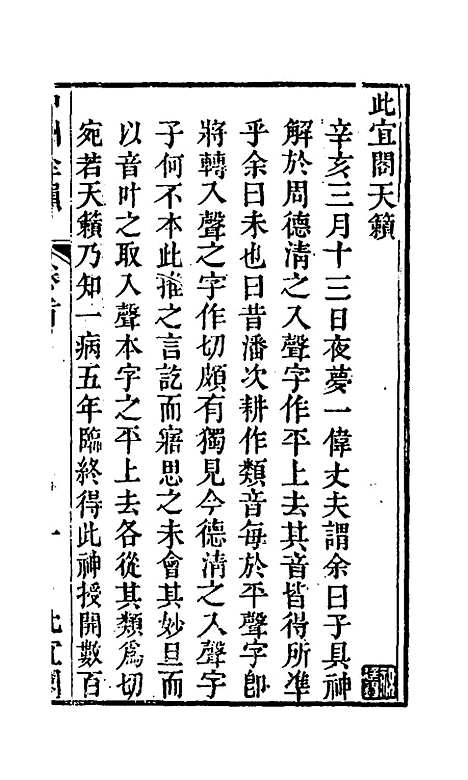 此宜閣天籟
辛亥三月十三日夜夢一偉丈夫謂余曰子具神
解於周德清之入聲字作平上去其音皆得所準
乎余曰未也曰昔潘次耕作類音每於平聲字卽
將轉入聲之字作切頗有獨見今德清之入聲字
子何不本此推之言訖而寤思之未會其妙旦而
以音叶之取入聲本字之平上去各從其類爲切
宛若天籟乃知一病五年臨終得此神授開數百
中州全韻
卷首
一
此宜閣